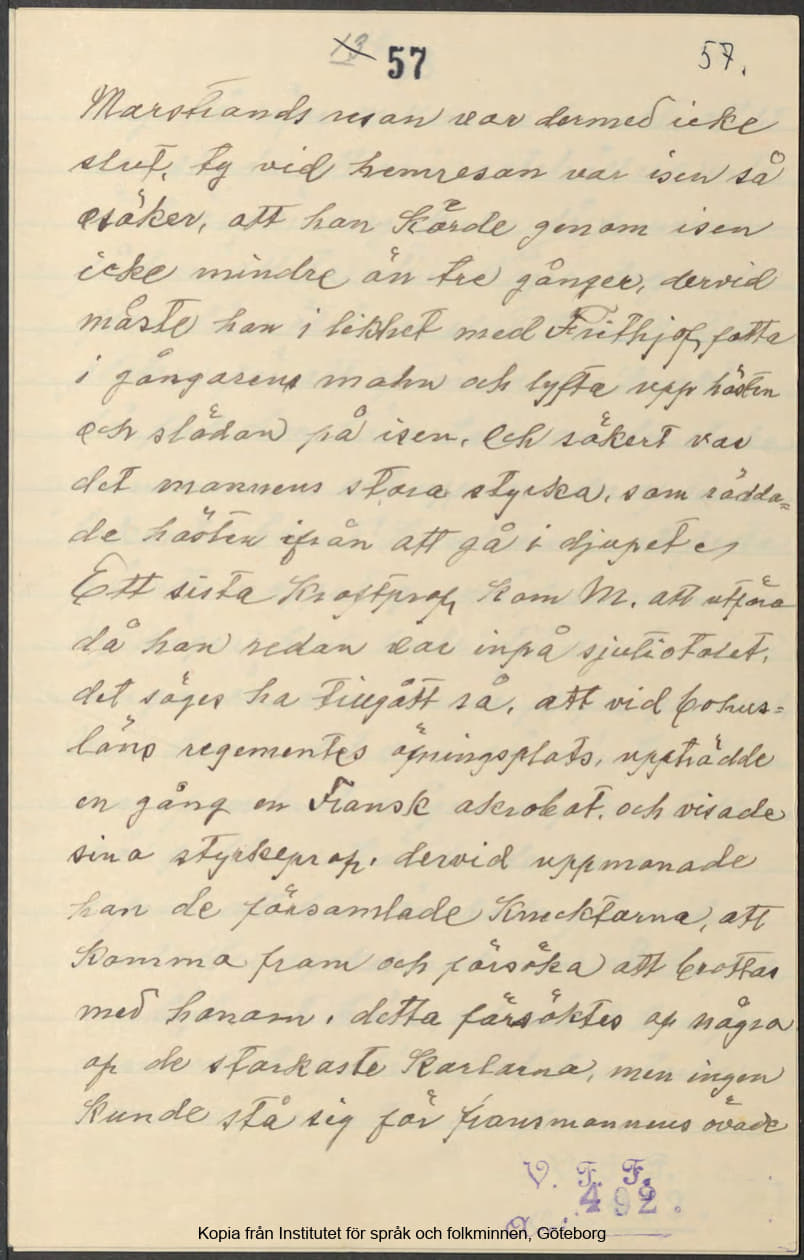 13 57 57.
Marstrands resan var dermed icke
slut, ty vid hemresan var isen så
osäker, att han körde genom isen
icke mindre än tre gånger, dervid
måste han i likhet med Frithjof, fatta
i gångarens mahn och lyfta upp hästen
och slädan på isen. Och säkert var
det mannens stora styrka, som rädda=
de hästen ifrån att gå i djupet
Ett sista Kraftprof, kom M. att utföra
då han redan var inpå sjutiotalet,
det säges ha tillgått så, att vid bohus=
läns regementes öfningsplats, uppträdde
en gång en Fransk akrobat, och visade
sina styrkeprof, dervid uppmanade
han de församlade Knecktarna, att
Komma fram och försöka att brottas
med honom, detta försöktes af några
af de starkaste Karlarna, men ingen
Kunde stå sig för fransmannens övade
V. F. F.
492.
Kopia från Institutet för språk och folkminnen, Göteborg